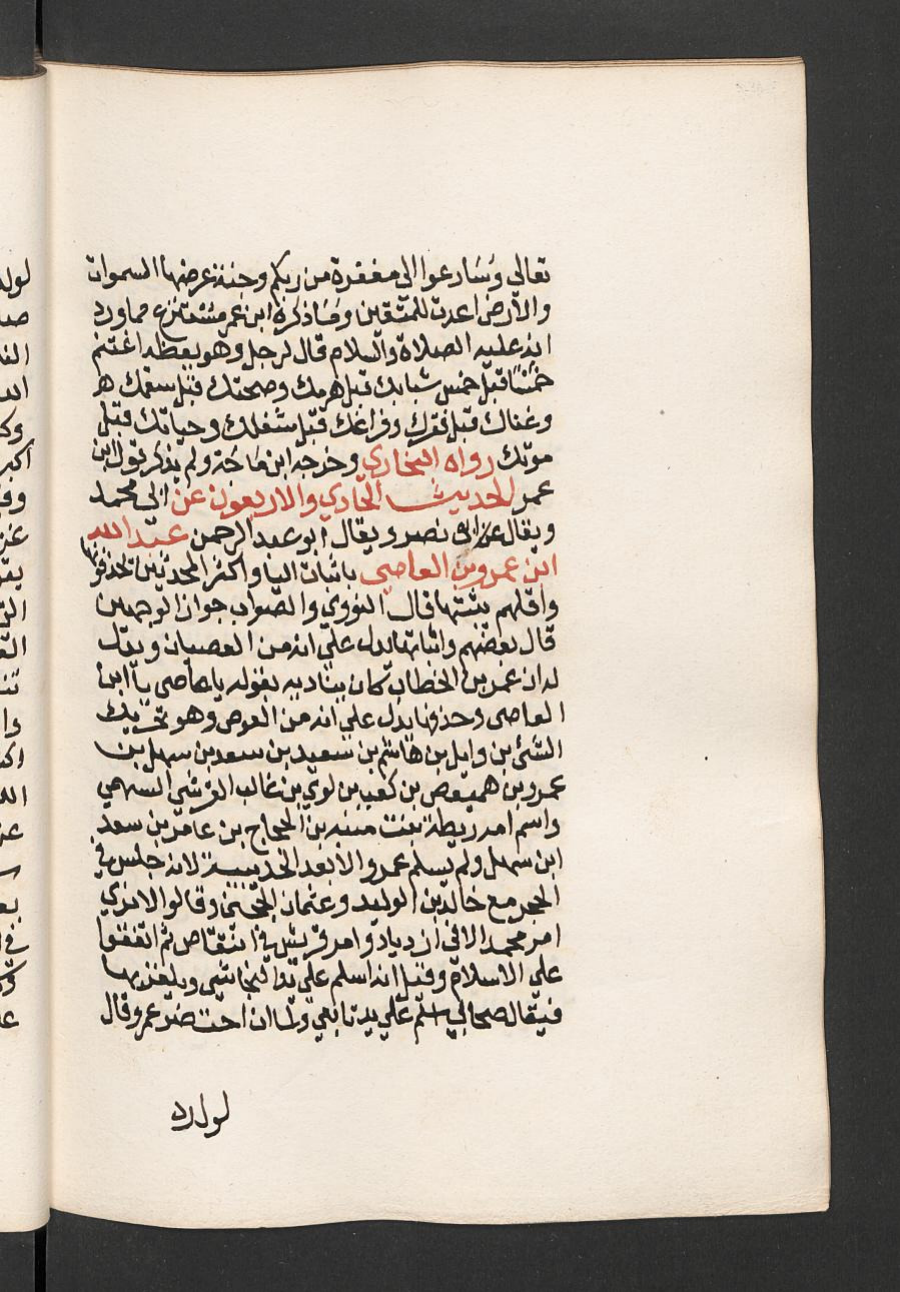 تعالي وسارعوا الي مغفرة من ربكم وجنة عرضها السموات
والارض اعدت للمتقين وما ذكره ابن عمر منتزع مما ورد
انه عليه الصلاة والسلام قال لرجل وهو يعظه اغتنم
خمسا قبل خمس شبابك قبل هرمك وصحتك قبل سقمك
وغناك قبل فقرك وفراغك قبل شغلك وحياتك قبل
موتك رواه البخاري وخرجه ابن ماجة ولم يذكر قول ابن
عمر الحديث الحادي والاربعون عن ابي محمد
ويقال عن ابي نصر ويقال ابو عبد الرحمن عبد الله
ابن عمرو بن العاصي باثبات اليا واكثر المحدثين تحذفونها
واقلهم يثبتها قال النووي والصواب جواز الوجهين
قال بعضهم واثباتها يدل علي انه من العصيان ويدل
له ان عمر بن الخطاب كان يناديه بقوله يا عاصي يا ابن
العاصي وحذفها يدل علي انه من العوص وهو تحريك
الشئ بن وايل بن هاشم بن سعيد بن سعد بن سهل بن
عمرو بن هصيص بن كعب بن لوي بن غالب القرشي السهمي
واسم امه ريطة بنت منبه بن الحجاج بن عامر بن سعد
ابن سهل ولم يسلم عمرو الا بعد الحديبية لانه جلس في
الحجر مع خالد بن الوليد وعثمان الحجبي وقالوا لا نري
امر محمد الا في ازدياد وامر قريش في انتقاص ثم اتفقوا
علي الاسلام وقيل انه اسلم علي يد النجاشي ويلغز بها
فيقال صحابي اسلم علي يد تابعي ولما ان احتضر عمرو قال
لولده